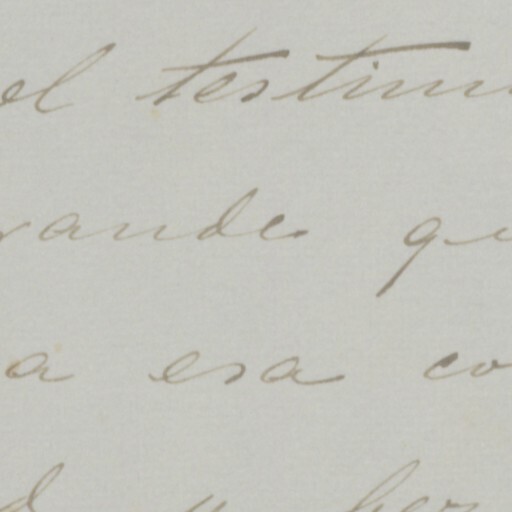 el testim
rande qu
a esa co
d y her